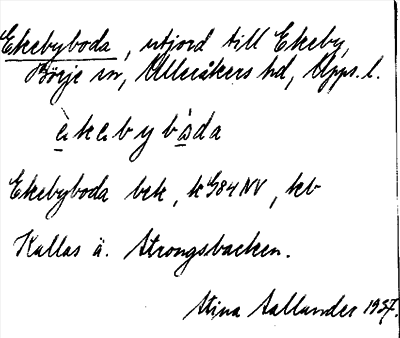 Ekebyboda, utjord till Ekeby,
Börje sn, Ulleråkers hd, Upps. l.
è k e b y b ò d a
Ekebyboda bek, kG84NV, kb
Kallas ä. Strongsbacken.
Stina Aallander 1937.